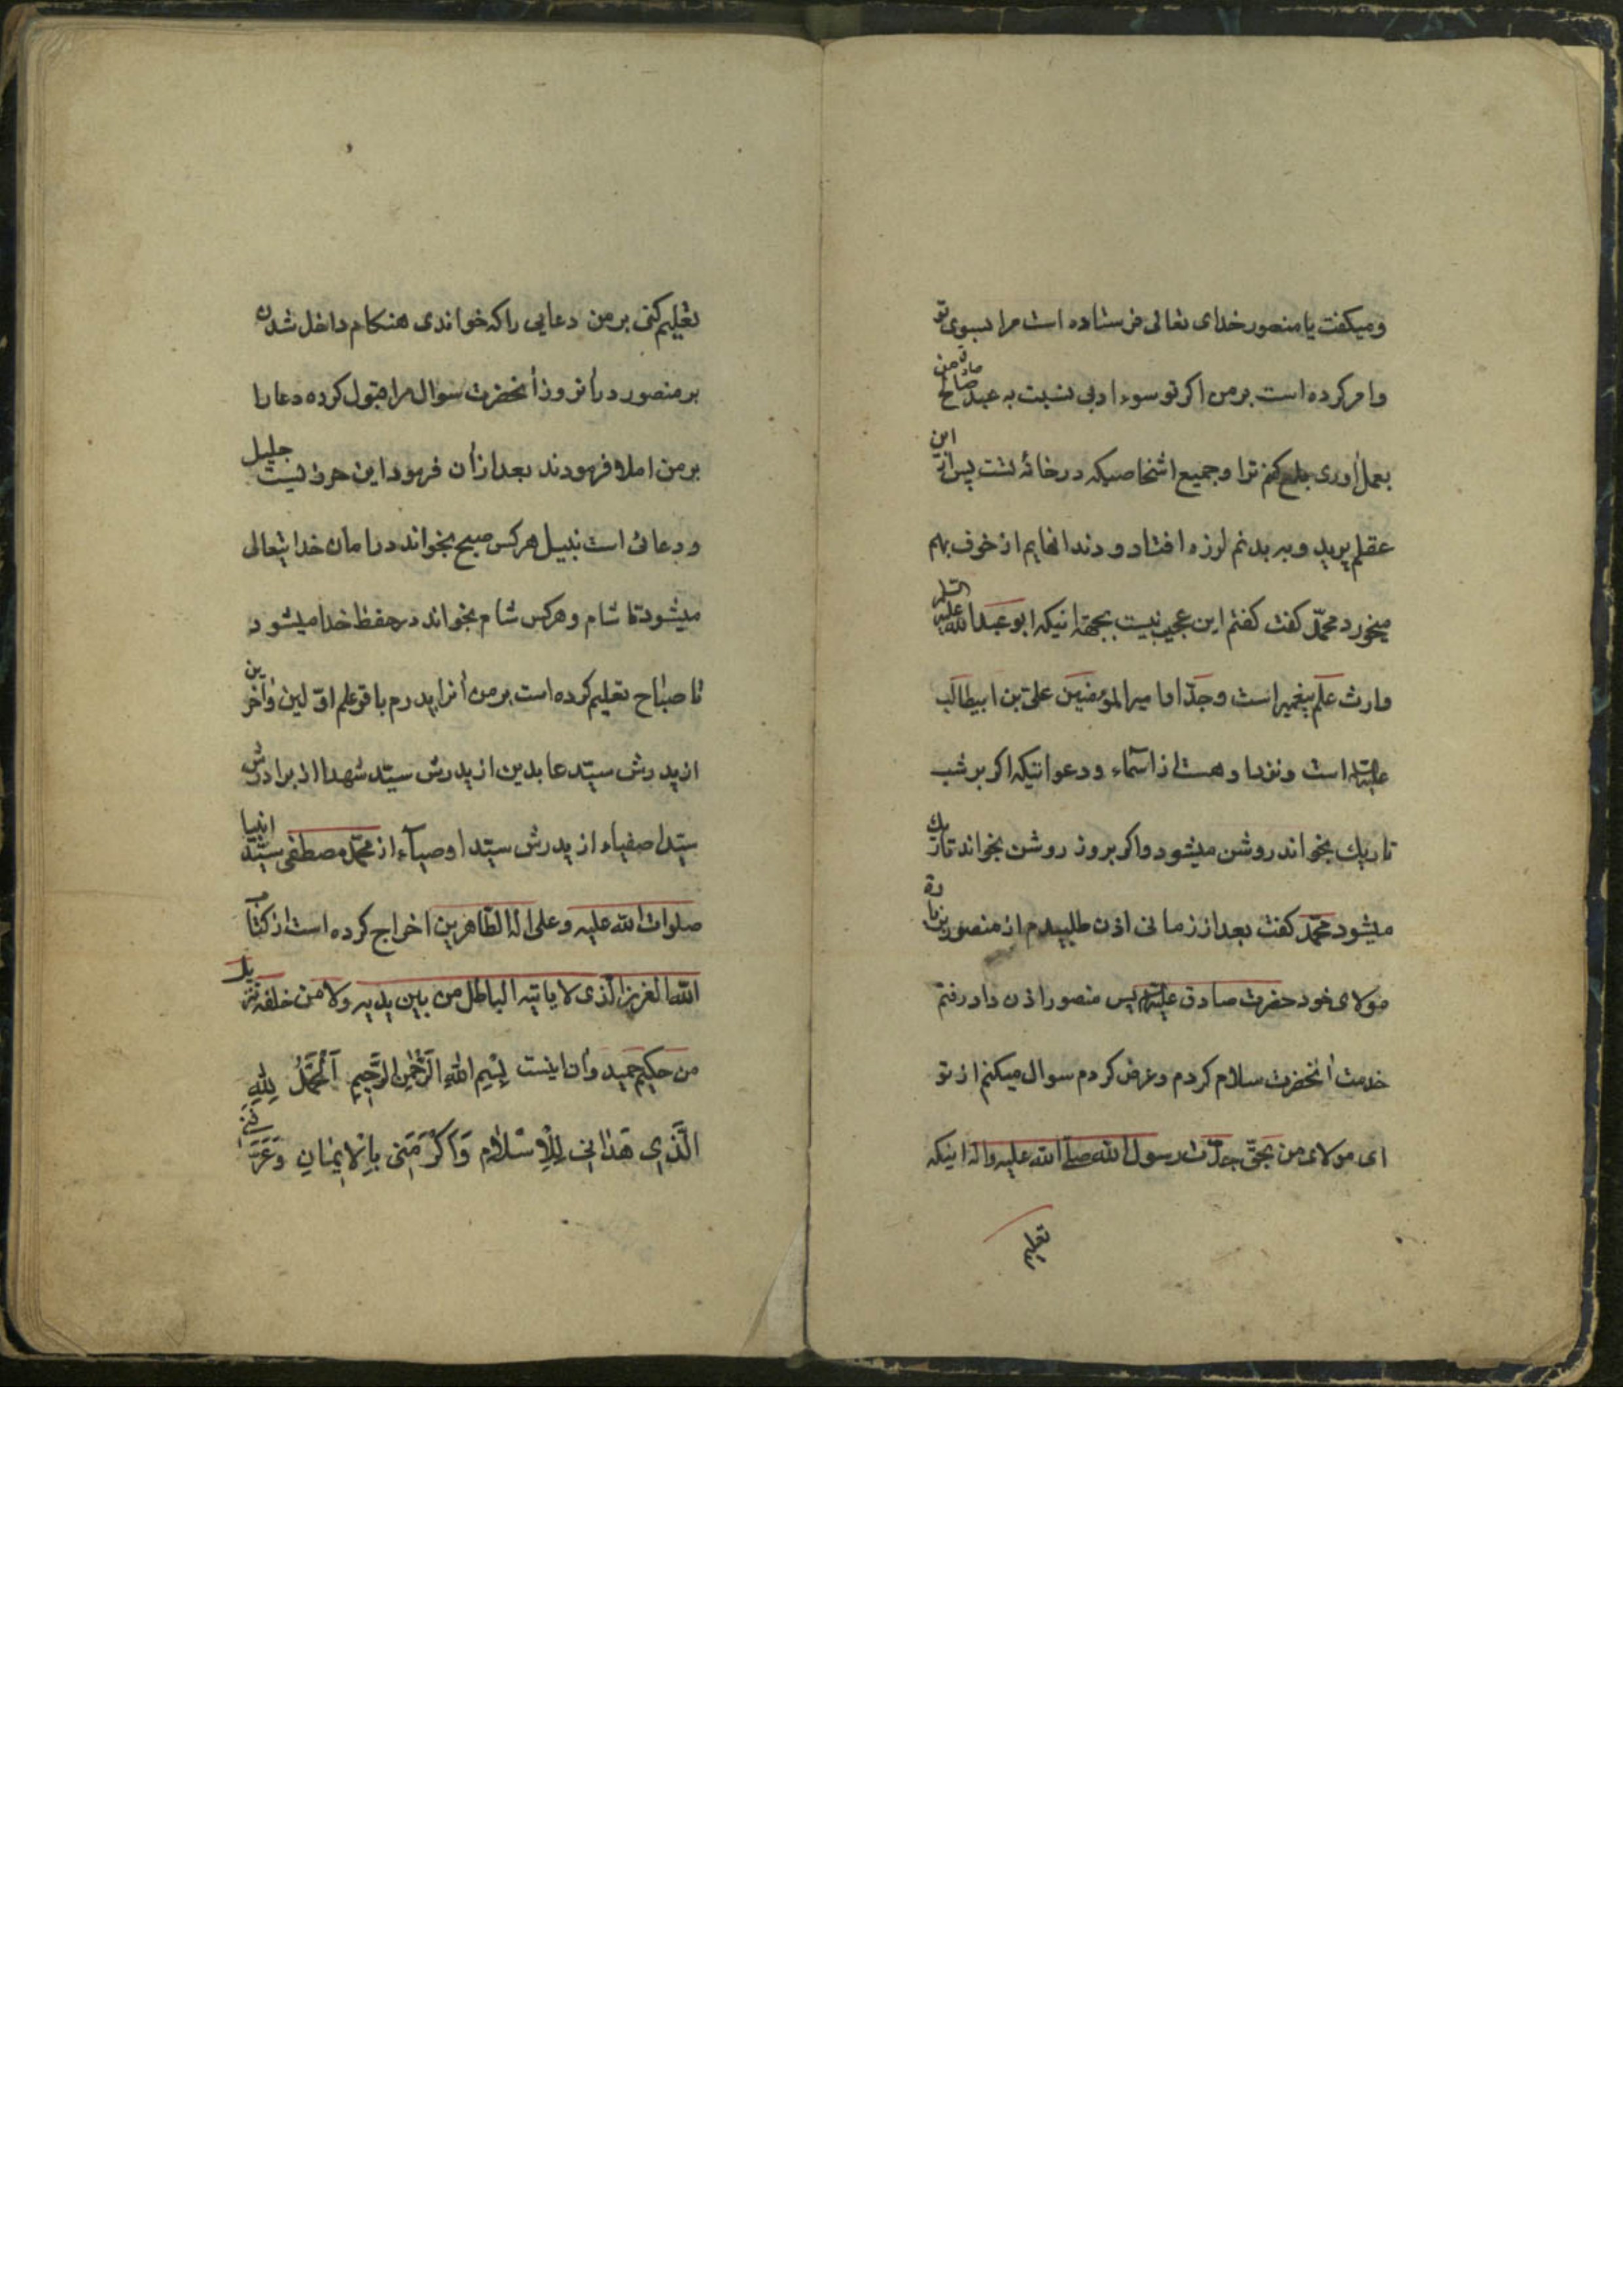 ومیکفت یا منصور خدای تعالی فرستاده است مرا بسوی تو
وامر کرده است بر من اکر تو سوء ادبی نسبت به عبد صالح من
بعمل أوری بلع کنم ترا وجمیع اشخاصیکه در خانۀ تست پس از این
عقلم پرید و به بدنم لرزه افتاد و دندانهایم از خوف بهم
میخورد محمّد کفت کفتم این عجیب نیست بجهة انیکه ابو عبدالله علیه السّلم
وارث علم پیغمبر است وجدّ او امیر المؤمنین علیّ بن ابیطالب
علیه السّلم است ونزد او هست از اسمآء ودعوانیکه اکر بر شب
تاریك بخواند روشن میشود واکر بروز روشن بخواند تاریك
میشود محمّد کفت بعد از زمانی اذن طلبیدم از منصور بزیارة
مولای خود حضرت صادق علیه السّلم پس منصور اذن داد رفتم
خدمت أنحضرت سلام کردم وعرض کردم سوال میکنم از تو
ای مولای من بحقّ جدّت رسول الله صلی الله علیه واله اینکه
تعلیم
تعلیم کنی بر من دعایی را که خواندی هنکام داخل شدن
بر منصور در أنروز أنحضرت سوال مرا قبول کرده دعا را
بر من املا فرمودند بعد از أن فرمود این حرز نیست جلیل
ودعائی است نبیل هر کس صبح بخواند در امان خدایتعالی
میشود تا شام وهر کس شام بخواند در حفظ خدا میشود
تا صباح تعلیم کرده است بر من أنرا پدرم باقر علم اوّلین وأخرین
از پدرش سیّد عابدین از پدرش سیّد شهدا از برادرش
سیّد اصفیاء از پدرش سیّد اوصیآء از محمّد مصطفی سیّد انبیا
صلوات الله علیه وعلی اله الطّاهرین اخراج کرده است از کتاب
الله العزیز الّذی لا یاتیه الباطل من بین یدیه ولا من خلفه تنزیل
من حکیم حمید وأن اینست بِسْمِ اللهِ الرَّحْمٰنِ الرَّحِیمِ اَلْحَمْدُ لِلّٰهِ
الَّذِی هَدٰانِی لِلْاِسْلٰامِ وَاَکْرَمَنِی بِالْاِیمٰانِ وَعَرَّفَنِیَ